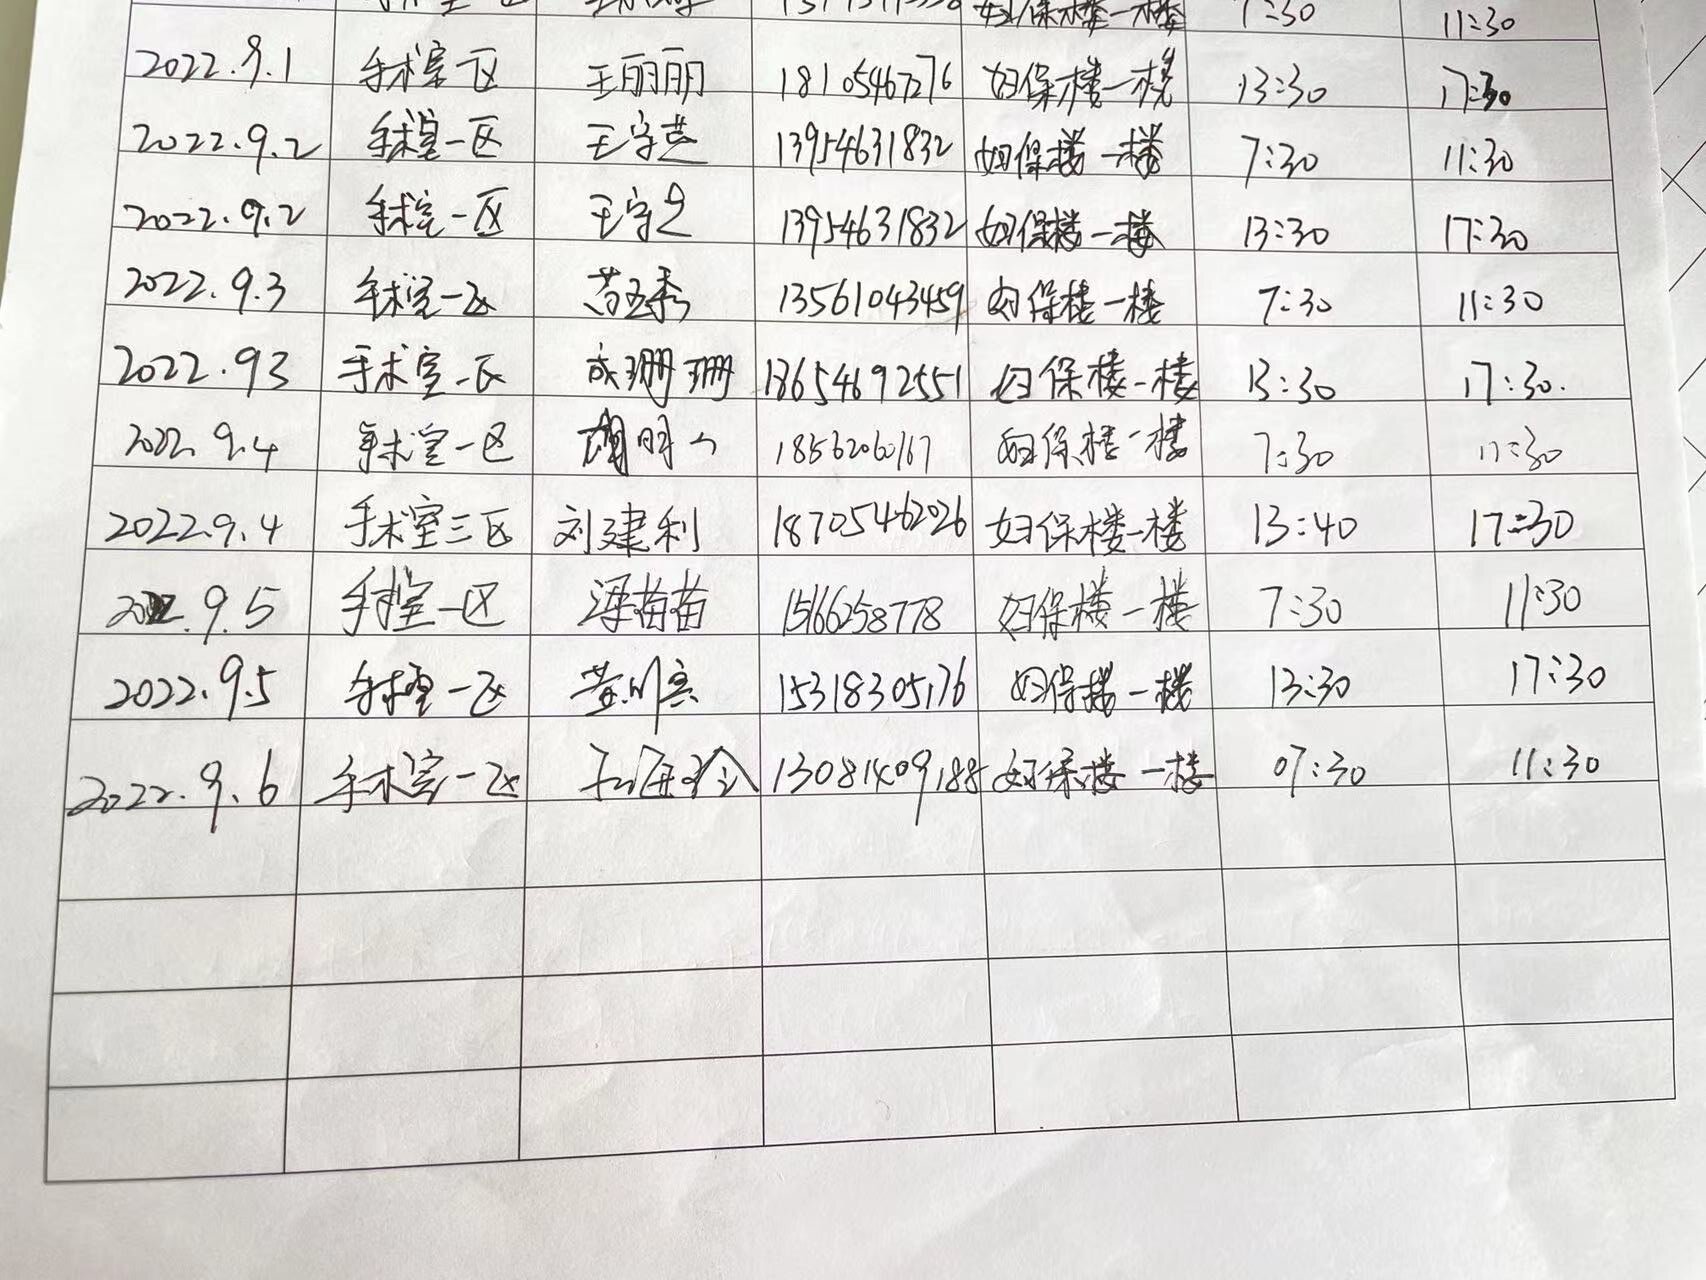 妇保楼一楼 7:30 11:30
2022.9.1 手术室一区 王丽丽 18105467276 妇保楼一楼 13:30 17:30
2022.9.2 手术室一区 王守芝 13954631832 妇保楼一楼 7:30 11:30
2022.9.2 手术室一区 王守芝 13954631832 妇保楼一楼 13:30 17:30
2022.9.3 手术室一区 13561043459 妇保楼一楼 7:30 11:30
2022.93 手术室一区 成珊珊 18654692551 妇保楼一楼 13:30 17:30.
2022.9.4 手术室一区 18562060167 妇保楼一楼 7:30 11:30
2022.9.4 手术室三区 刘建利 18705462026 妇保楼一楼 13:40 17:30
2022.9.5 手术室一区 梁苗苗 15166258778 妇保楼一楼 7:30 11:30
2022.9.5 手术室一区 15318305176 妇保楼一楼 13:30 17:30
2022.9.6 手术室一区 13081409188 妇保楼一楼 07:30 11:30